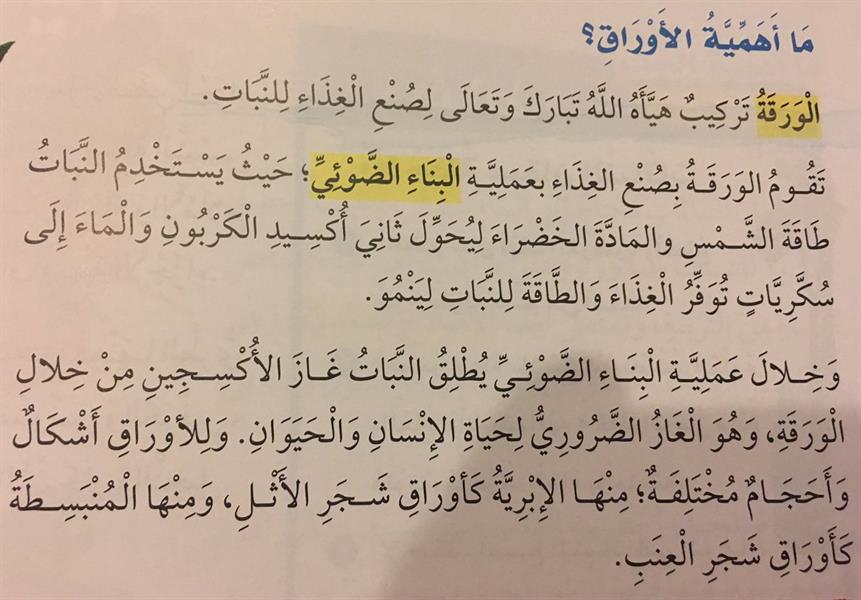 مَا أَهَمِّيَّةُ الأَوْرَاقِ؟
الْوَرَقَةُ تَرْكِيبٌ هَيَّأَهُ اللَّهُ تَبَارَكَ وَتَعَالَى لِصُنْعِ الْغِذَاءِ لِلنَّبَاتِ.
تَقُومُ الوَرَقَةُ بِصُنْعِ الغِذَاءِ بعَمَلِيَّةِ الْبِنَاءِ الضَّوْئِيِّ؛ حَيْثُ يَسْتَخْدِمُ النَّبَاتُ
طَاقَةَ الشَّمْسِ والمَادَّةَ الخَضْرَاءَ لِيُحَوِّلَ ثَانِيَ أُكْسِيدِ الْكَرْبُونِ وَالْمَاءَ إِلَى
سُكَّرِيَّاتٍ تُوَفِّرُ الْغِذَاءَ وَالطَّاقَةَ لِلنَّبَاتِ لِيَنْمُوَ.
وَخِلالَ عَمَلِيَّةِ الْبِنَاءِ الضَّوْئِيِّ يُطْلِقُ النَّبَاتُ غَازَ الأُكْسِجِينِ مِنْ خِلالِ
الْوَرَقَةِ، وَهُوَ الْغَازُ الضَّرُورِيُّ لِحَيَاةِ الإِنْسَانِ وَالْحَيَوَانِ. وَلِلأوْرَاقِ أَشْكَالٌ
وَأَحَجَامٌ مُخْتَلِفَةٌ؛ مِنْهَا الإِبْرِيَّةُ كَأوْرَاقِ شَجَرِ الأَثْلِ، وَمِنْهَا الْمُنْبَسِطَةُ
كَأَوْرَاقِ شَجَرِ الْعِنَبِ.